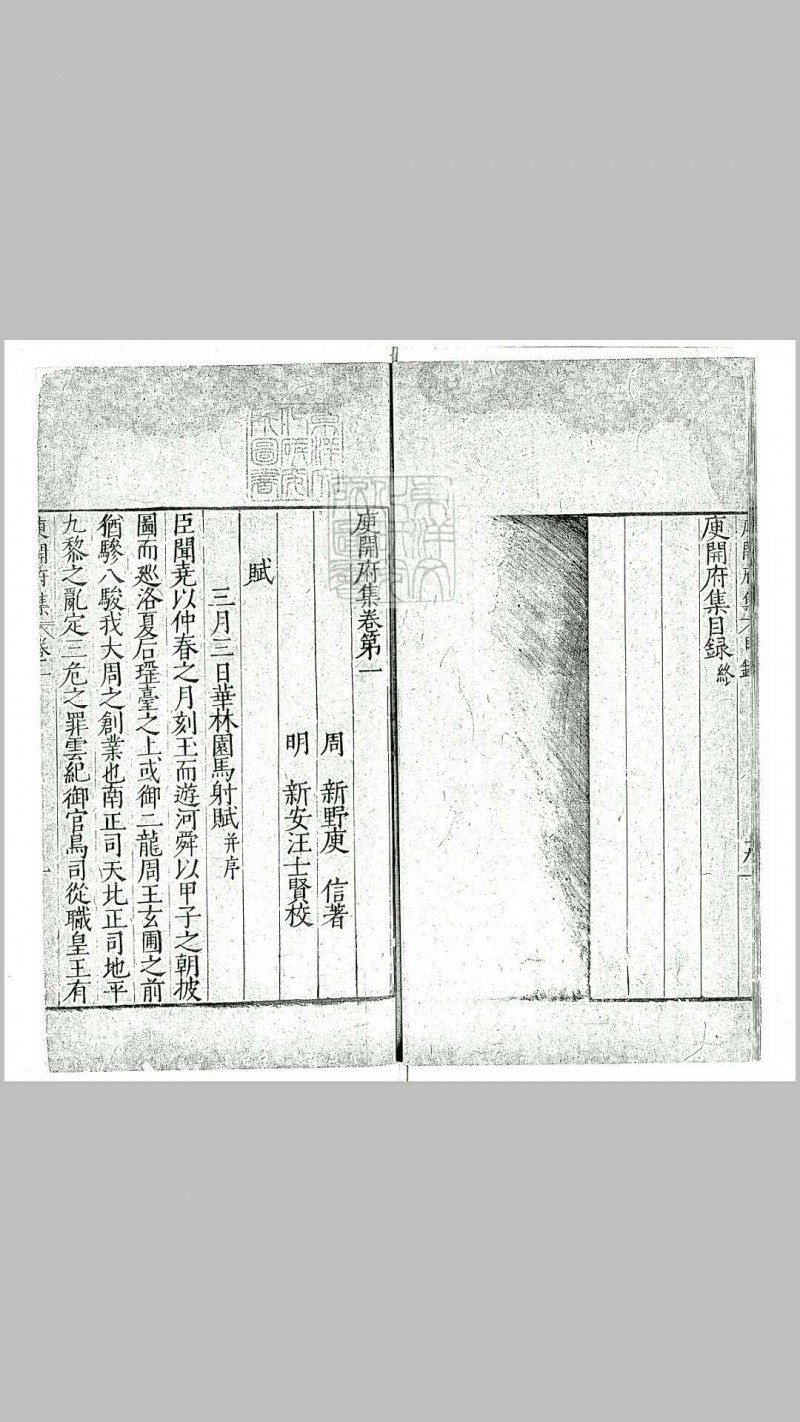 庾開府集目録
庾開府集目録終
庾開府集卷第一
周 新野庾 信著
明 新安汪士賢校
賦
三月三日華林園馬射賦并序
臣聞堯以仲春之月刻玉而遊河舜以甲子之朝披
圖而廵洛夏后瑶臺之上或御二龍周王玄圃之前
猶驂八駿我大周之創業也南正司天北正司地平
九黎之亂定三危之罪雲紀御官鳥司從職皇王有
庾開府集 卷一
一